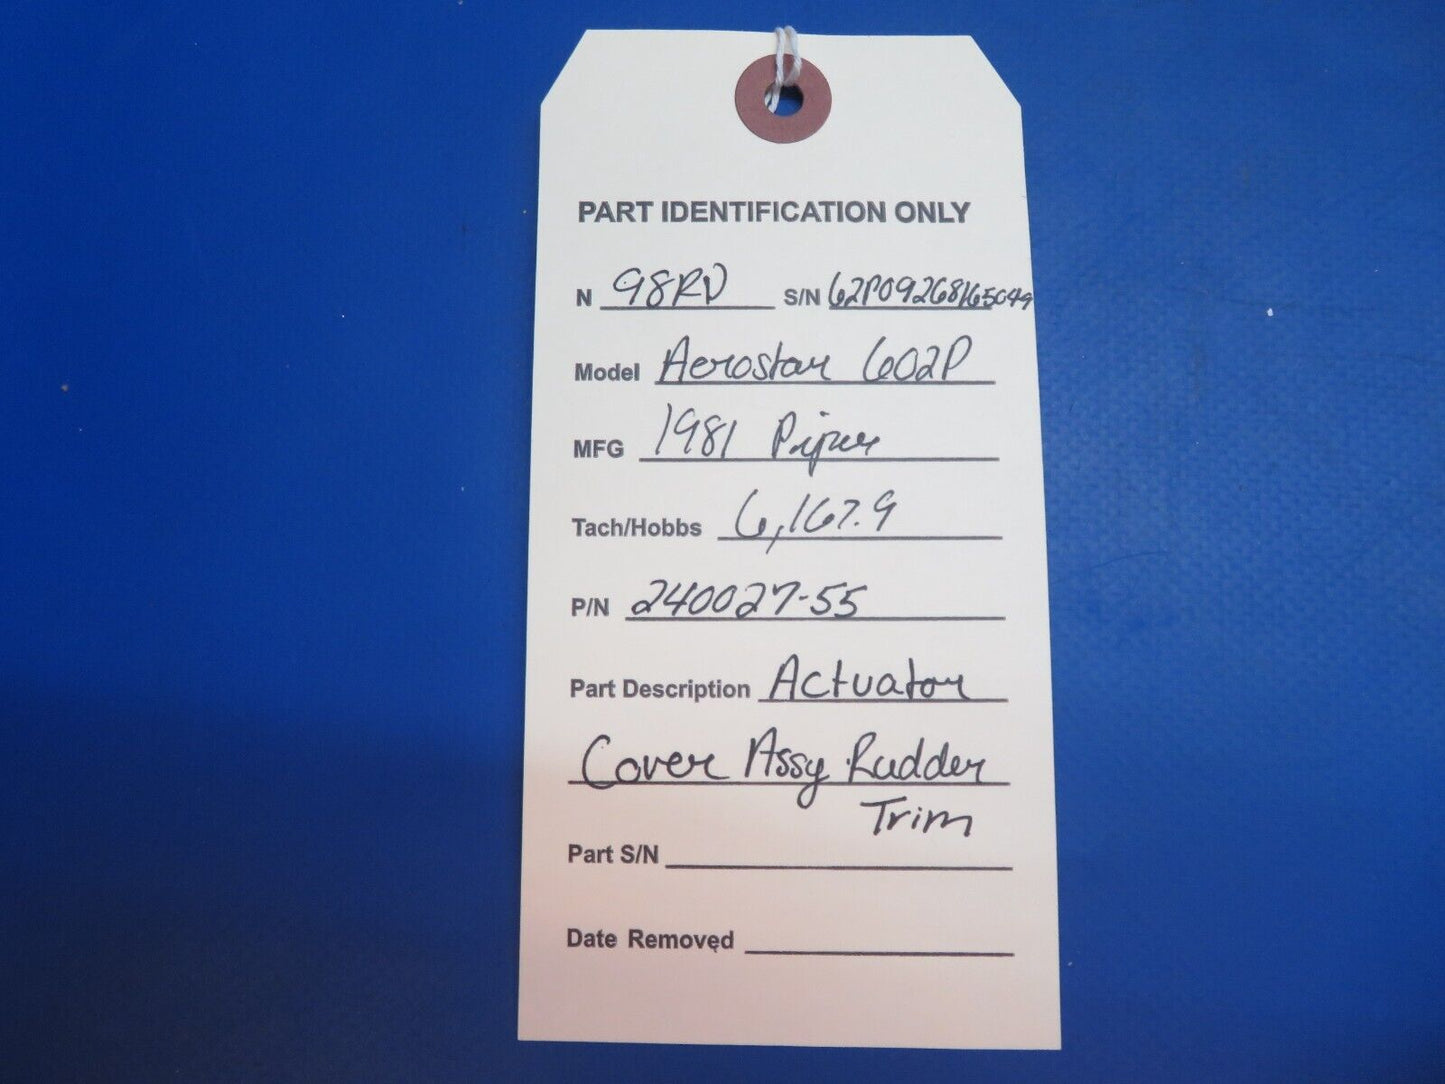 PART IDENTIFICATION ONLY
N 98RD S/N 62P09268165049
Model Aerostar 602P
MFG 1981 Piper
Tach/Hobbs 6,167.9
P/N 240027-55
Part Description Actuator
Cover Assy Rudder
Trim
Part S/N
Date Removed